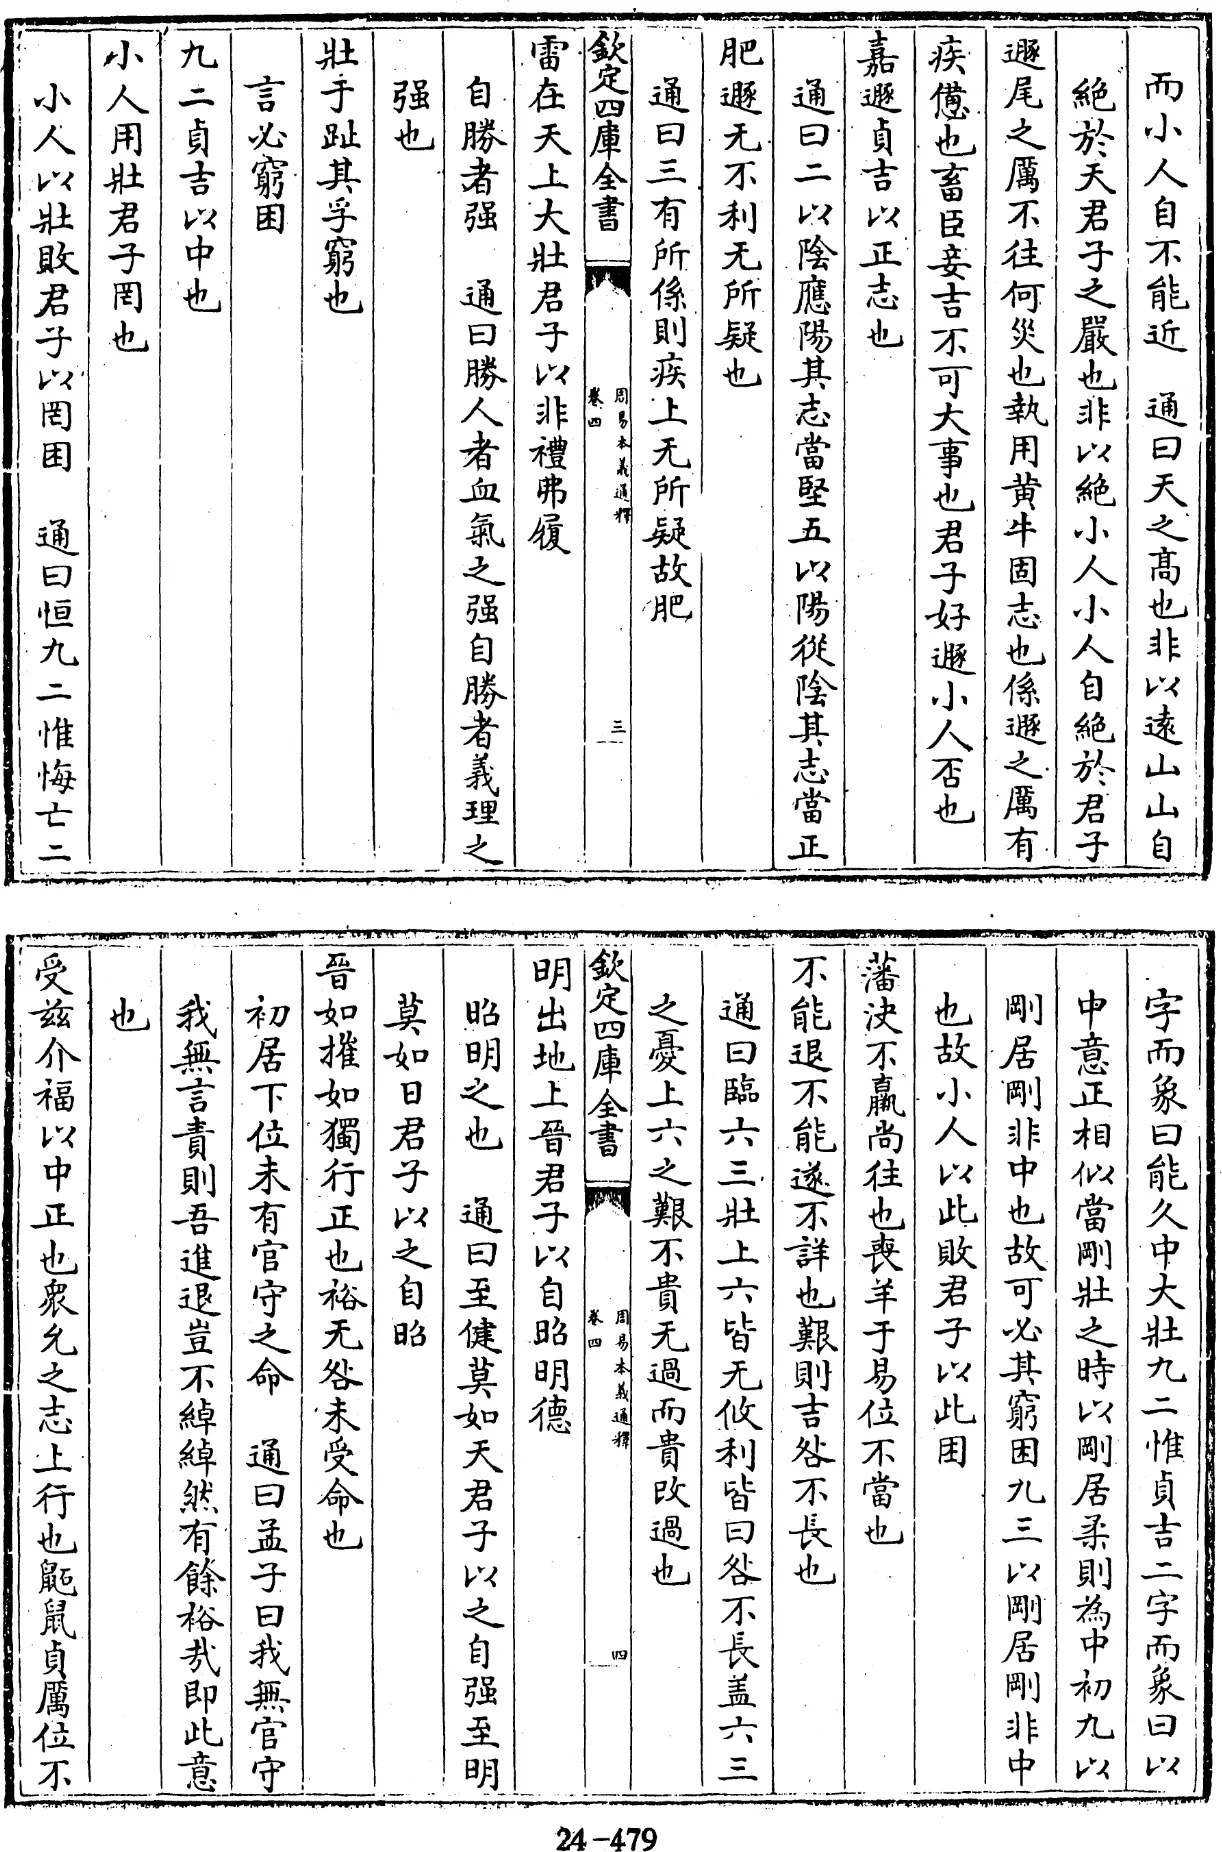 而小人自不能近　通曰天之髙也非以逺山山自
絶於天君子之嚴也非以絶小人小人自絶於君子
遯尾之厲不往何災也執用黄牛固志也係遯之厲有
疾憊也畜臣妾吉不可大事也君子好遯小人否也
嘉遯貞吉以正志也
通曰二以陰應陽其志當堅五以陽從陰其志當正
肥遯无不利无所疑也
通曰三有所係則疾上无所疑故肥
欽定四庫全書
周易本義通釋
卷四
三
雷在天上大壯君子以非禮弗履
自勝者强　通曰勝人者血氣之强自勝者義理之
强也
壯于趾其孚窮也
言必窮困
九二貞吉以中也
小人用壯君子罔也
小人以壯敗君子以罔困　通曰恒九二惟悔亡二
字而象曰能久中大壯九二惟貞吉二字而象曰以
中意正相似當剛壯之時以剛居柔則為中初九以
剛居剛非中也故可必其窮困九三以剛居剛非中
也故小人以此敗君子以此困
藩決不羸尚往也喪羊于易位不當也
不能退不能遂不詳也艱則吉咎不長也
通曰臨六三壯上六皆无攸利皆曰咎不長盖六三
之憂上六之艱不貴无過而貴改過也
欽定四庫全書
周易本義通釋
卷四
四
明出地上晉君子以自昭明德
昭明之也　通曰至健莫如天君子以之自强至明
莫如日君子以之自昭
晉如摧如獨行正也裕无咎未受命也
初居下位未有官守之命　通曰孟子曰我無官守
我無言責則吾進退豈不綽綽然有餘裕㢤即此意
也
受兹介福以中正也衆允之志上行也鼫鼠貞厲位不
24-479